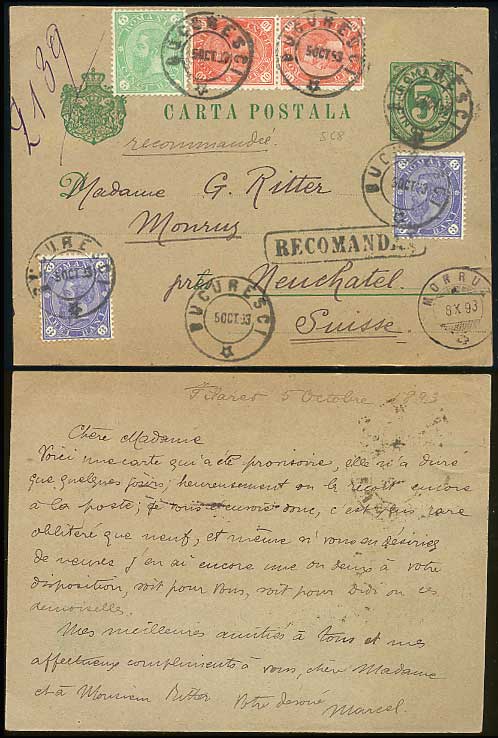 2139
ROMANIA
BUCURESCI
5 OCT 93
BUCURESCI
5 OCT 93
BUCURESCI
5
CARTA POSTALA
recommandée
508
BUCURESCI
5 OCT 93
ROMANIA
3 BANI 3
Madame G. Ritter
Monruz
RECOMANDA
près Neuchatel
Suisse.
BUCURESCI
5 OCT 93
ROMANIA
3 TREI BANI 3
BUCURESCI
5 OCT 93
MONRUZ
8 X 93
5 Octobre 1893
Chère Madame
Voici une carte qui a été provisoire, elle n'a duré
que quelques jours; heureusement on la reçoit encore
à la poste; je vous envoie donc, c'est plus rare
oblitéré que neuf, et même si vous en désiriez
de neuves j'en ai encore une ou deux à votre
disposition, soit pour vous, soit pour Didi ou ces
demoiselles.
Mes meilleures amitiés à tous et mes
affectueux compliments à vous, chère Madame
et à Monsieur Ritter. Votre dévoué
Marcel.